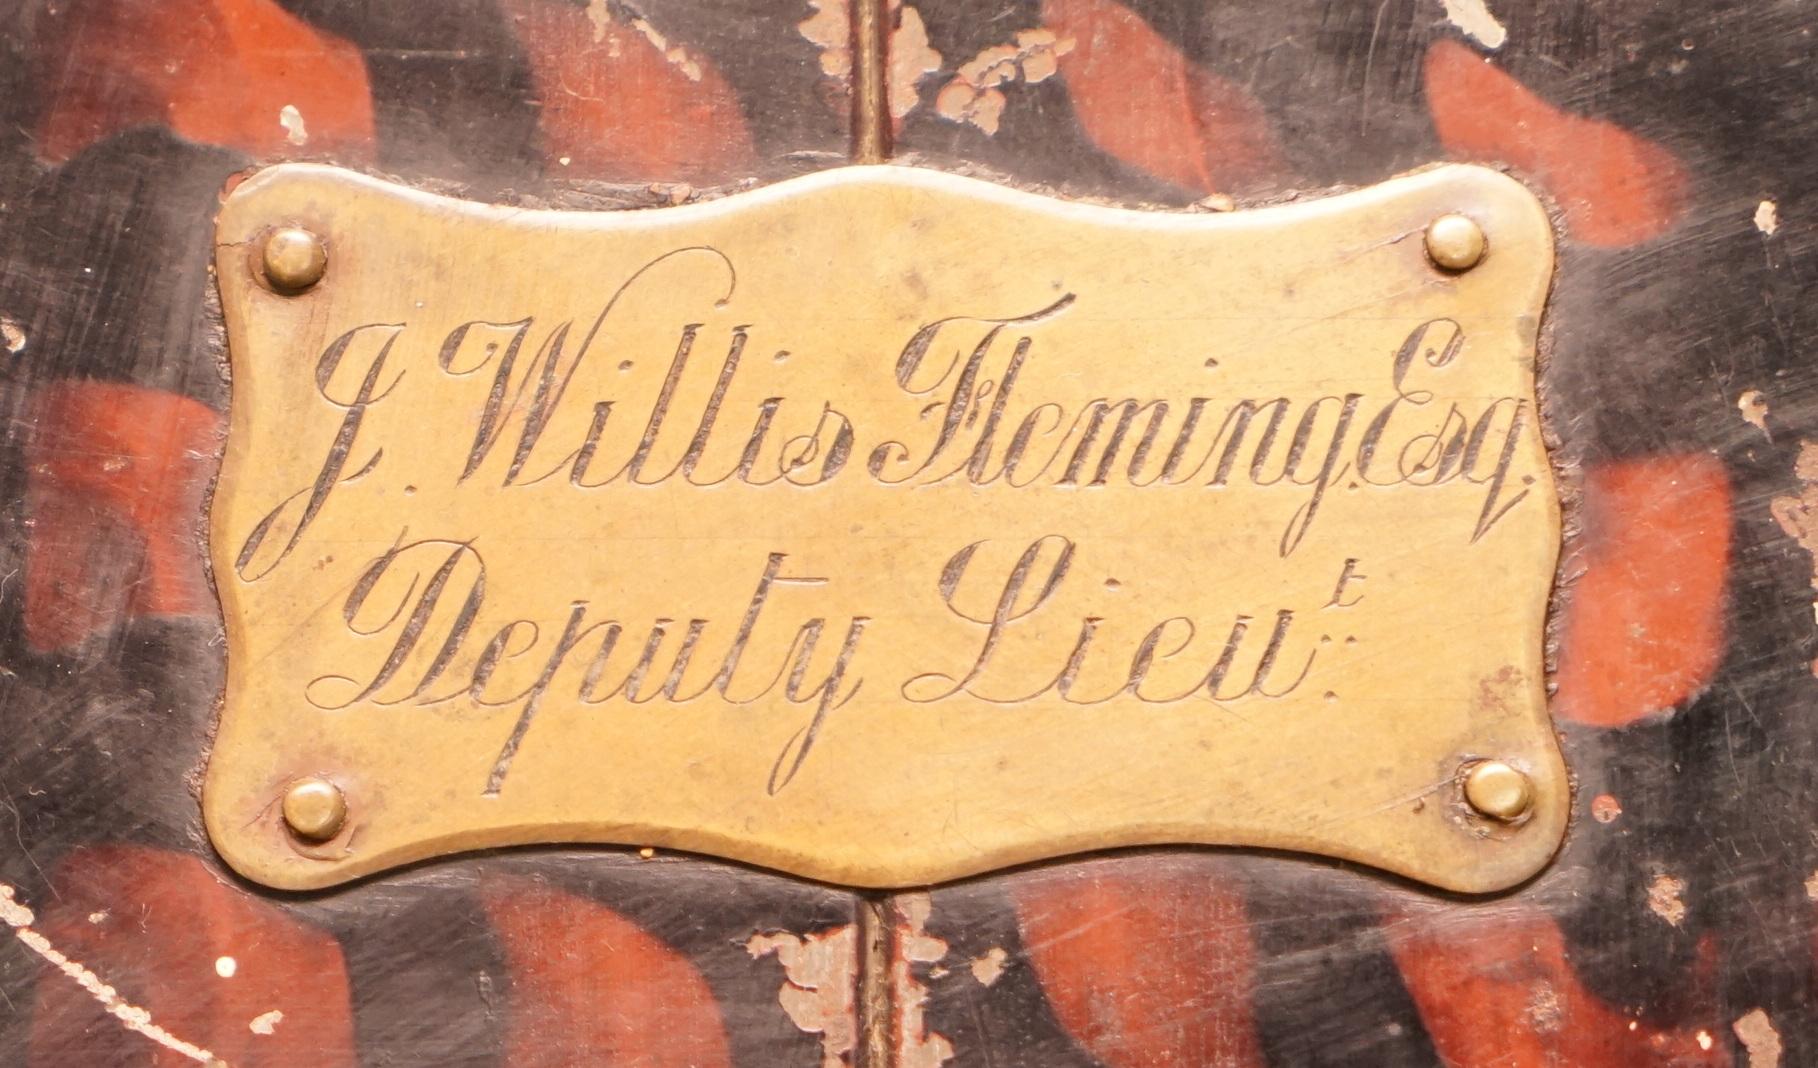 J. Willis Fleming. Esq.
Deputy Lieut.